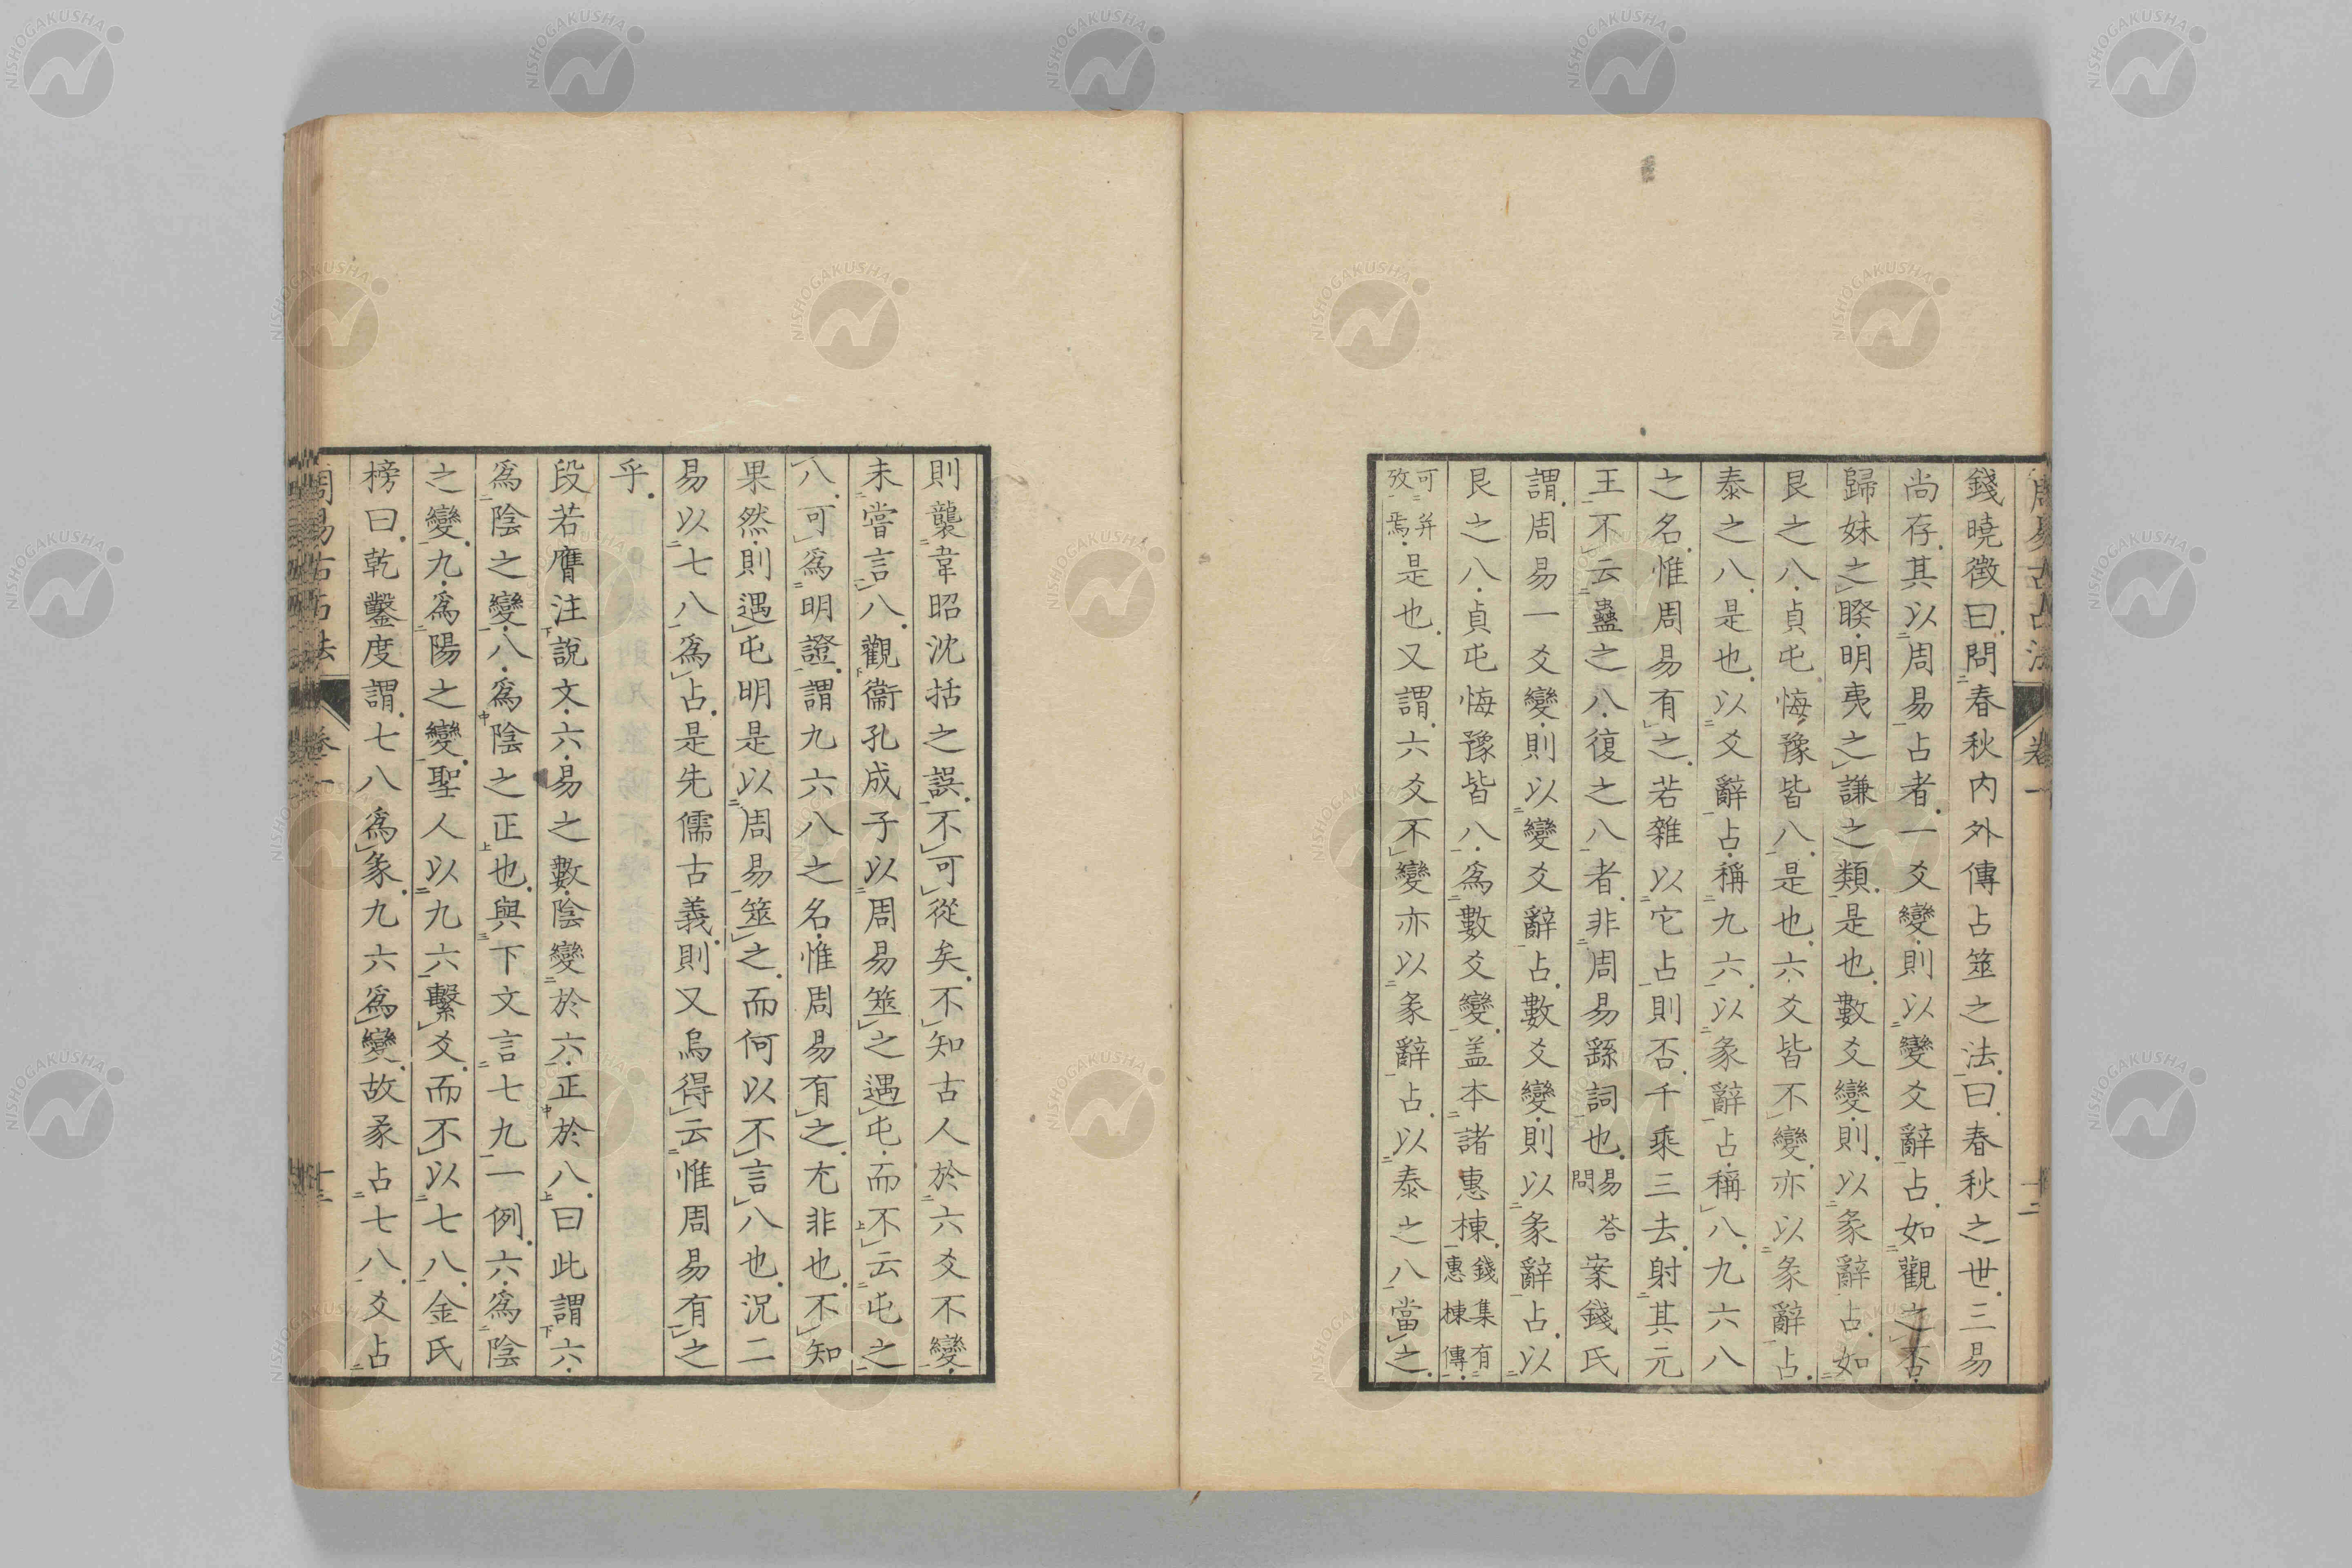 錢曉徵曰問春秋內外傳占筮之法曰春秋之世三易
尚存其以周易占者一爻變則以變爻辭占如觀之否
歸妹之睽明夷之謙之類是也數爻變則以彖辭占如
艮之八貞屯悔豫皆八是也六爻皆不變亦以彖辭占
泰之八是也以爻辭占稱九六以彖辭占稱八九六八
之名惟周易有之若雜以它占則否千乘三去射其元
王不云蠱之八復之八者非周易繇詞也易荅問案錢氏
謂周易一爻變則以變爻辭占數爻變則以彖辭占以
艮之八貞屯悔豫皆八爲數爻變盖本諸惠棟錢集有惠棟傳
可并攷焉是也又謂六爻不變亦以彖辭占以泰之八當之
則襲韋昭沈括之誤不可從矣不知古人於六爻不變
未嘗言八觀衞孔成子以周易筮之遇屯而不云屯之
八可爲明證謂九六八之名惟周易有之尤非也不知
果然則遇屯明是以周易筮之而何以不言八也況二
易以七八爲占是先儒古義則又烏得云惟周易有之
乎
段若膺注說文六易之數陰變於六正於八曰此謂六
爲陰之變八爲陰之正也與下文言七九一例六爲陰
之變九爲陽之變聖人以九六繫爻而不以七八金氏
榜曰乾鑿度謂七八爲彖九六爲變故彖占七八爻占
周易古占法 卷一 十二
NISHOGAKUSHA